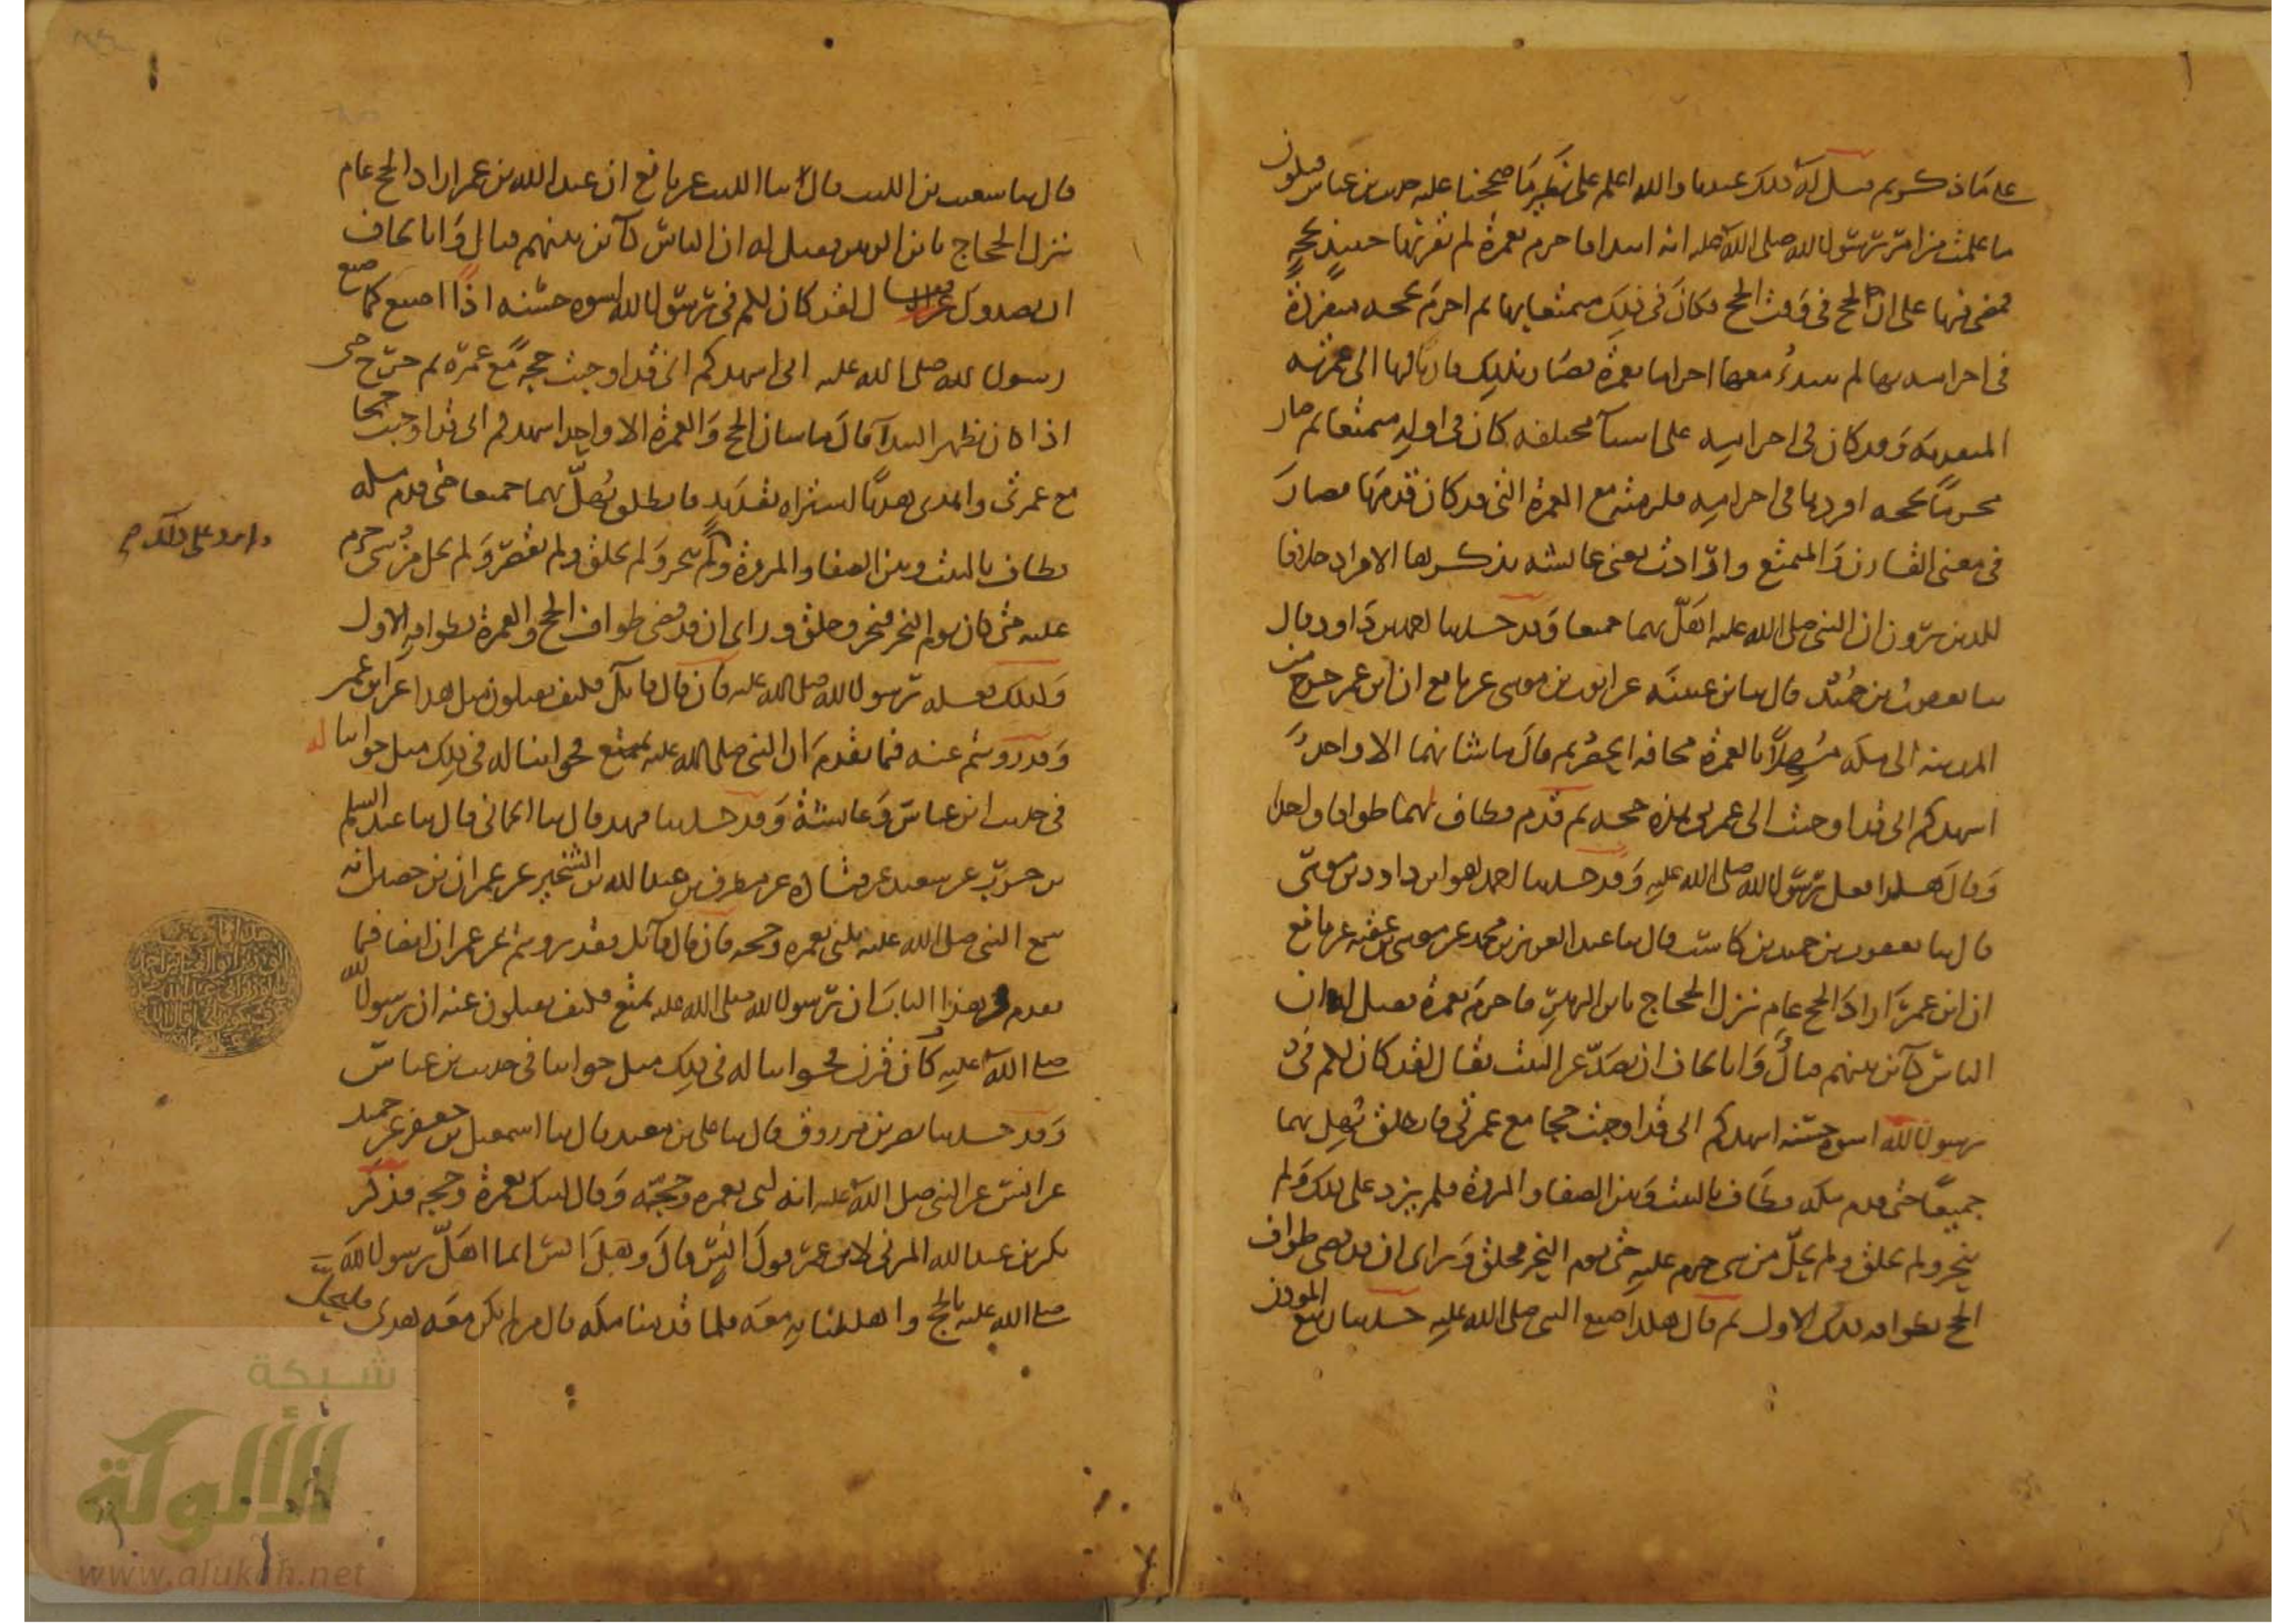 على ما ذكرتم قيل له ذلك عندنا والله اعلم على نظير ما صححنا عليه حديث ابن عباس فيكون
ما علمت من امر رسول الله صلى الله عليه انه ابتدا فاحرم بعمرة لم يقرنها حينئذ بحجة
فمضى فيها على ان يحج في وقت الحج فكان في ذلك متمتعا بها ثم احرم بحجة مفردة
في احرامه بها لم يبتدئ معها احراما بعمرة فصار بذلك قارنا لها الى عمرته
المتقدمة وقد كان في احرامه على اشيا مختلفة كان في اوله متمتعا ثم صار
محرما بحجة افردها في احرامه فلزمته مع العمرة التي قد كان قدمها فصار
في معنى القارن والمتمتع وارادت يعني عائشة بذكرها الافراد خلافا
للذين يروون ان النبي صلى الله عليه اهل بهما جميعا وقد حدثنا احمد بن داود قال
ثنا يعقوب بن حميد قال ثنا بن عيينة عن ايوب بن موسى عن نافع ان ابن عمر خرج من
المدينة الى مكة مهلا بالعمرة مخافة الحصر ثم قال ما شانهما الا واحد
اشهدكم اني قد اوجبت الى عمرتي هذه حجة ثم قدم فطاف لهما طوافا واحدا
وقال هكذا فعل رسول الله صلى الله عليه وقد حدثنا احمد هو ابن داود بن موسى
قال ثنا يعقوب بن حميد بن كاسب قال ثنا عبد العزيز بن محمد عن موسى بن عقبة عن نافع
ان ابن عمر اراد الحج عام نزل الحجاج بابن الزبير فاحرم بعمرة فقيل له ان
الناس كائن بينهم قتال وانا نخاف ان نصد عن البيت فقال لقد كان لكم في
رسول الله اسوة حسنة اشهدكم اني قد اوجبت حجا مع عمرتي فانطلق يهل بهما
جميعا حتى قدم مكة فطاف بالبيت وبين الصفا والمروة فلم يزد على ذلك ولم
ينحر ولم يحلق ولم يحل من شي حرم عليه حتى يوم النحر فحلق وراى ان قد قضى طواف
الحج بطوافه ذلك الاول ثم قال هكذا صنع النبي صلى الله عليه حدثنا ربيع المؤذن
قال ثنا شعيب بن الليث قال ثنا الليث عن نافع ان عبد الله بن عمر اراد الحج عام
نزل الحجاج بابن الزبير فقيل له ان الناس كائن بينهم قتال وانا نخاف
ان يصدوك فقال لقد كان لكم في رسول الله اسوة حسنة اذا اصنع كما صنع
رسول الله صلى الله عليه اني اشهدكم اني قد اوجبت حجة مع عمرة ثم خرج حتى
اذا كان بظهر البيدا قال ما شان الحج والعمرة الا واحد اشهدكم اني قد اوجبت حجا
مع عمرتي واهدى هديا اشتراه بقديد فانطلق يهل بهما جميعا حتى قدم مكة
فطاف بالبيت وبين الصفا والمروة ولم ينحر ولم يحلق ولم يقصر ولم يحل من شي حرم
عليه حتى كان يوم النحر فنحر وحلق وراى ان قد قضى طواف الحج والعمرة بطوافه الاول
وكذلك فعله رسول الله صلى الله عليه فان قال قائل فكيف يقبلون مثل هذا عن ابن عمر
وقد رويتم عنه فيما تقدم ان النبي صلى الله عليه تمتع فجوابنا له في ذلك مثل جوابنا له
في حديث ابن عباس وعائشة وقد حدثنا فهد قال ثنا الحماني قال ثنا عبد السلم
بن حرب عن سعيد عن قتادة عن مطرف بن عبد الله بن الشخير عن عمران بن حصين انه
سمع النبي صلى الله عليه يلبي بعمرة وحجة فان قال قائل فقد رويتم عن عمران ايضا فيما
تقدم من هذا الباب ان رسول الله صلى الله عليه تمتع فكيف يقبلون عنه ان رسول الله
صلى الله عليه كان قرن فجوابنا له في ذلك مثل جوابنا في حديث بن عباس
وقد حدثنا نصر بن مرزوق قال ثنا علي بن معبد قال ثنا اسمعيل بن جعفر عن حميد
عن انس عن النبي صلى الله عليه انه لبى بعمرة وحجة وقال لبيك بعمرة وحجة فذكر
بكر بن عبد الله المزني لابن عمر قول انس قال وهل انس انما اهل رسول الله
صلى الله عليه بالحج واهللنا به معه فلما قدمنا مكة قال من لم يكن معه هدى فليحل
شبكة
الألوكة
www.alukah.net